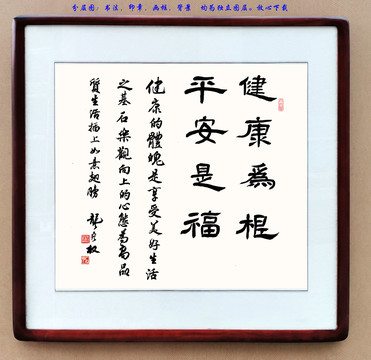 分层图：书法、印章、画框、背景 均为独立图层。放心下载
健康為根
平安是福
健康的體魄是享受美好生活
之基石樂觀向上的心態為高品
質生活插上如意翅膀